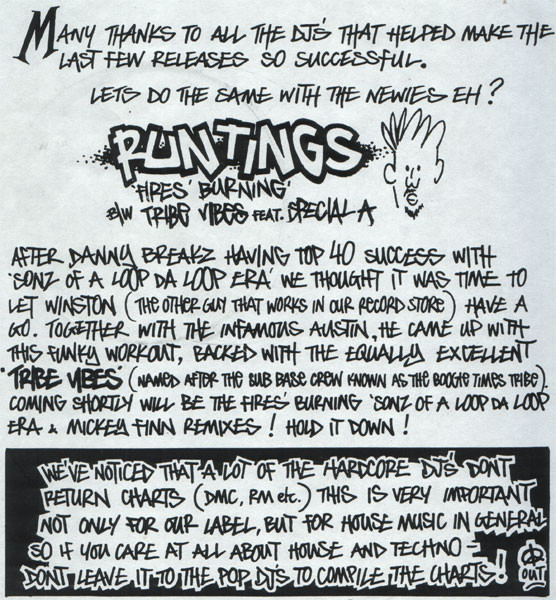 MANY THANKS TO ALL THE DJ'S THAT HELPED MAKE THE
LAST FEW RELEASES SO SUCCESSFUL.
LETS DO THE SAME WITH THE NEWIES EH?
RUNTINGS
'FIRES' BURNING'
B/W TRIBE VIBES FEAT. SPECIAL A
AFTER DANNY BREAKZ HAVING TOP 40 SUCCESS WITH
'SONZ OF A LOOP DA LOOP ERA' WE THOUGHT IT WAS TIME TO
LET WINSTON (THE OTHER GUY THAT WORKS IN OUR RECORD STORE) HAVE A
GO. TOGETHER WITH THE INFAMOUS AUSTIN, HE CAME UP WITH
THIS FUNKY WORKOUT, BACKED WITH THE EQUALLY EXCELLENT
'TRIBE VIBES' (NAMED AFTER THE SUB BASE CREW KNOWN AS THE BOOGIE TIMES TRIBE)
COMING SHORTLY WILL BE THE FIRES' BURNING 'SONZ OF A LOOP DA LOOP
ERA & MICKEY FINN REMIXES! HOLD IT DOWN!
WE'VE NOTICED THAT A LOT OF THE HARDCORE DJ'S DONT
RETURN CHARTS (DMC, RM etc.) THIS IS VERY IMPORTANT
NOT ONLY FOR OUR LABEL, BUT FOR HOUSE MUSIC IN GENERAL
SO IF YOU CARE AT ALL ABOUT HOUSE AND TECHNO -
DONT LEAVE IT TO THE POP DJ'S TO COMPILE THE CHARTS!
OUT